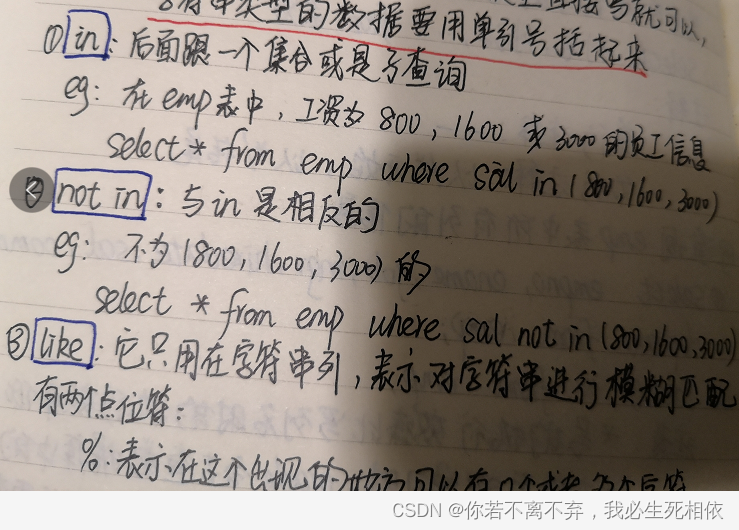 字符串类型的数据要用单引号括起来
① in：后面跟一个集合或是子查询
eg：在emp表中，工资为 800，1600 或3000的员工信息
select * from emp where sal in (800,1600,3000)
② not in：与in是相反的
eg：不为(800,1600,3000)的
select * from emp where sal not in (800,1600,3000)
③ like：它只用在字符串列，表示对字符串进行模糊匹配
有两个占位符：
%：表示在这个出现的地方可以有0个或者多个字符
CSDN @你若不离不弃，我必生死相依